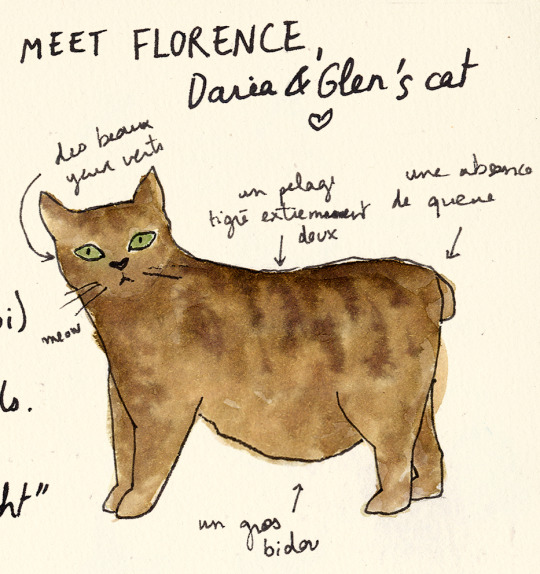 MEET FLORENCE,
Daria & Glen's cat
des beaux
yeux verts
un pelage
tigré extremement
doux
une absence
de queue
oi)
meow
ls.
ht"
un gros
bidou